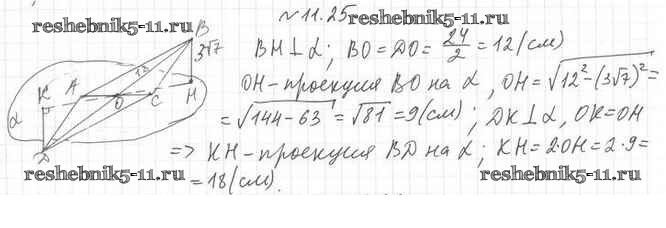 №11.25
reshebnik5-11.ru
reshebnik5-11.ru
B
3√7
12
K
A
O
C
H
α
D
BH⊥α; BO=DO= 24/2 =12(см)
OH-проекция BO на α, OH=√(12²-(3√7)²)=
=√(144-63)=√81=9(см); DK⊥α, OK=OH
=> KH-проекция BD на α; KH=2·OH=2·9=
=18(см).
reshebnik5-11.ru
reshebnik5-11.ru